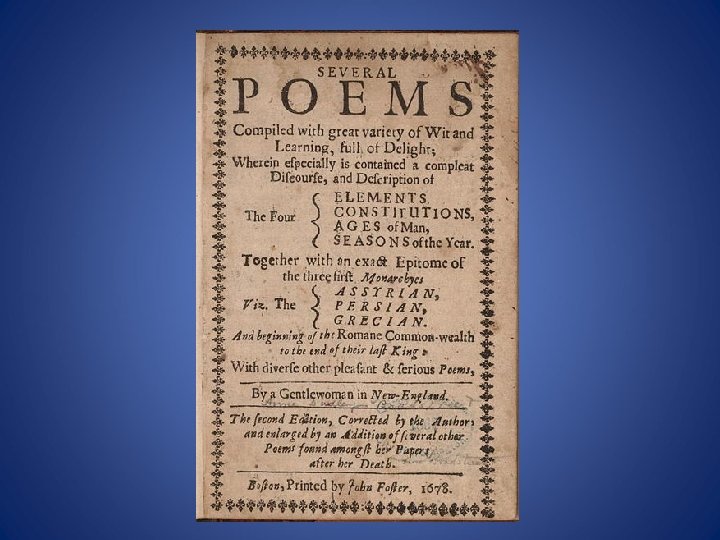 SEVERAL
POEMS
Compiled with great variety of Wit and
Learning, full of Delight;
Wherein eſpecially is contained a compleat
Diſcourſe, and Deſcription of
The Four
ELEMENTS
CONSTITUTIONS,
AGES of Man,
SEASONS of the Year.
Together with an exact Epitome of
the three firſt Monarchyes
Viz. The
ASSYRIAN,
PERSIAN,
GRECIAN.
And beginning of the Romane Common-wealth
to the end of their laſt King:
With diverſe other pleaſant & ſerious Poems,
By a Gentlewoman in New-England.
The ſecond Edition, Corrected by the Author,
and enlarged by an Addition of ſeveral other
Poems found amongſt her Papers
after her Death.
Boſton, Printed by John Foſter, 1678.